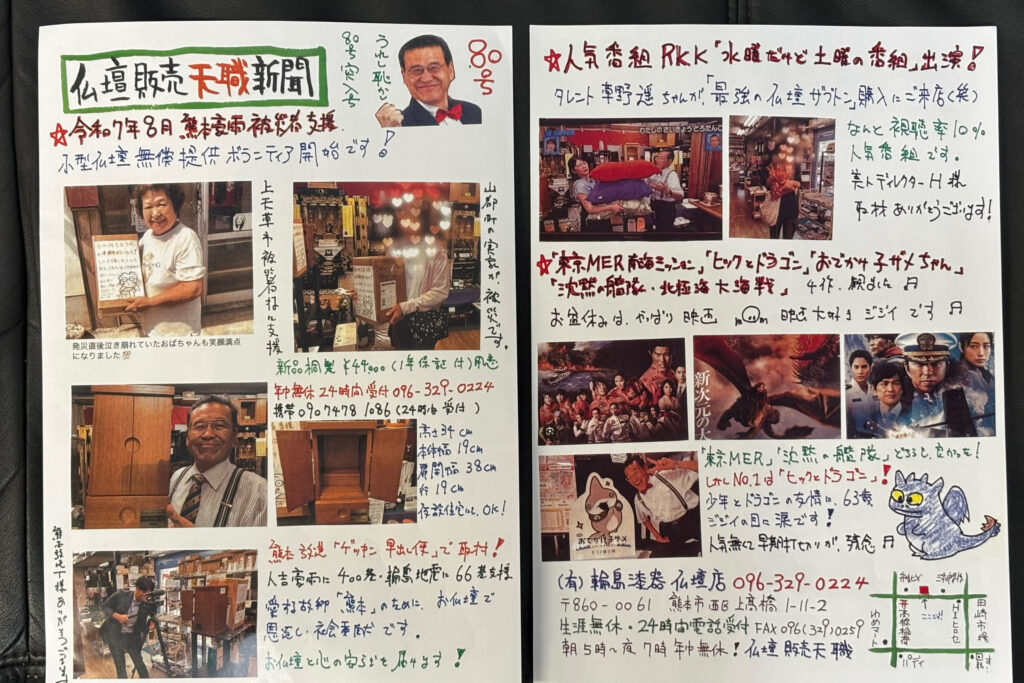 仏壇販売天職新聞
うれし恥かし
80号突入号
80号
☆令和7年8月 熊本豪雨被災者支援.
小型仏壇無償提供ボランティア開始です!
上天草市被災者様に支援
山都町の実家が、被災です。
発災直後泣き崩れていたおばちゃんも笑顔満点
になりました
新品桐製 ¥44,000 (1年保証付)用意
年中無休24時間受付 096-329-0224
携帯090 7478 1086 (24時間受付)
高さ34cm
本体幅19cm
扉開幅38cm
行19cm
仮設住宅にも、OK!
熊本放送「ゲツキン早出し便」で取材!
人吉豪雨に400基・輪島地震に66基支援
愛する故郷「熊本」のために、お仏壇で
恩返し・社会貢献です。
お仏壇と心の安らぎを届けます!
☆人気番組RKK「水曜だけど土曜の番組」出演!
タレント草野遥ちゃんが、「最強の仏壇ザブトン」購入にご来店(笑)
わたしのさいきょう どろだんご
なんと視聴率10%
人気番組です。
美人ディレクターH様
取材ありがとうございます!
☆「東京MER 南海ミッション」「ヒックとドラゴン」「おでかけ子ザメちゃん」
「沈黙の艦隊・北極海大海戦」 4作、観ました♬
お盆休みは、やっぱり映画 映画大好きジジイです♬
新次元の
おでかけ子ザメ
「東京MER」「沈黙の艦隊」どちらも、良かった!
しかしNo.1は「ヒックとドラゴン」!
少年とドラゴンの友情に、63歳
ジジイの目に涙です!
人気無くて早期打ち切りが、残念♬
(有)輪島漆器仏壇店 096-329-0224
〒860-0061 熊本市西区上高橋1-11-2
生涯無休・24時間電話受付 FAX 096(329)0259
朝5時~夜7時 年中無休!仏壇販売天職
ゆめマート
ここだよ!
田崎市場